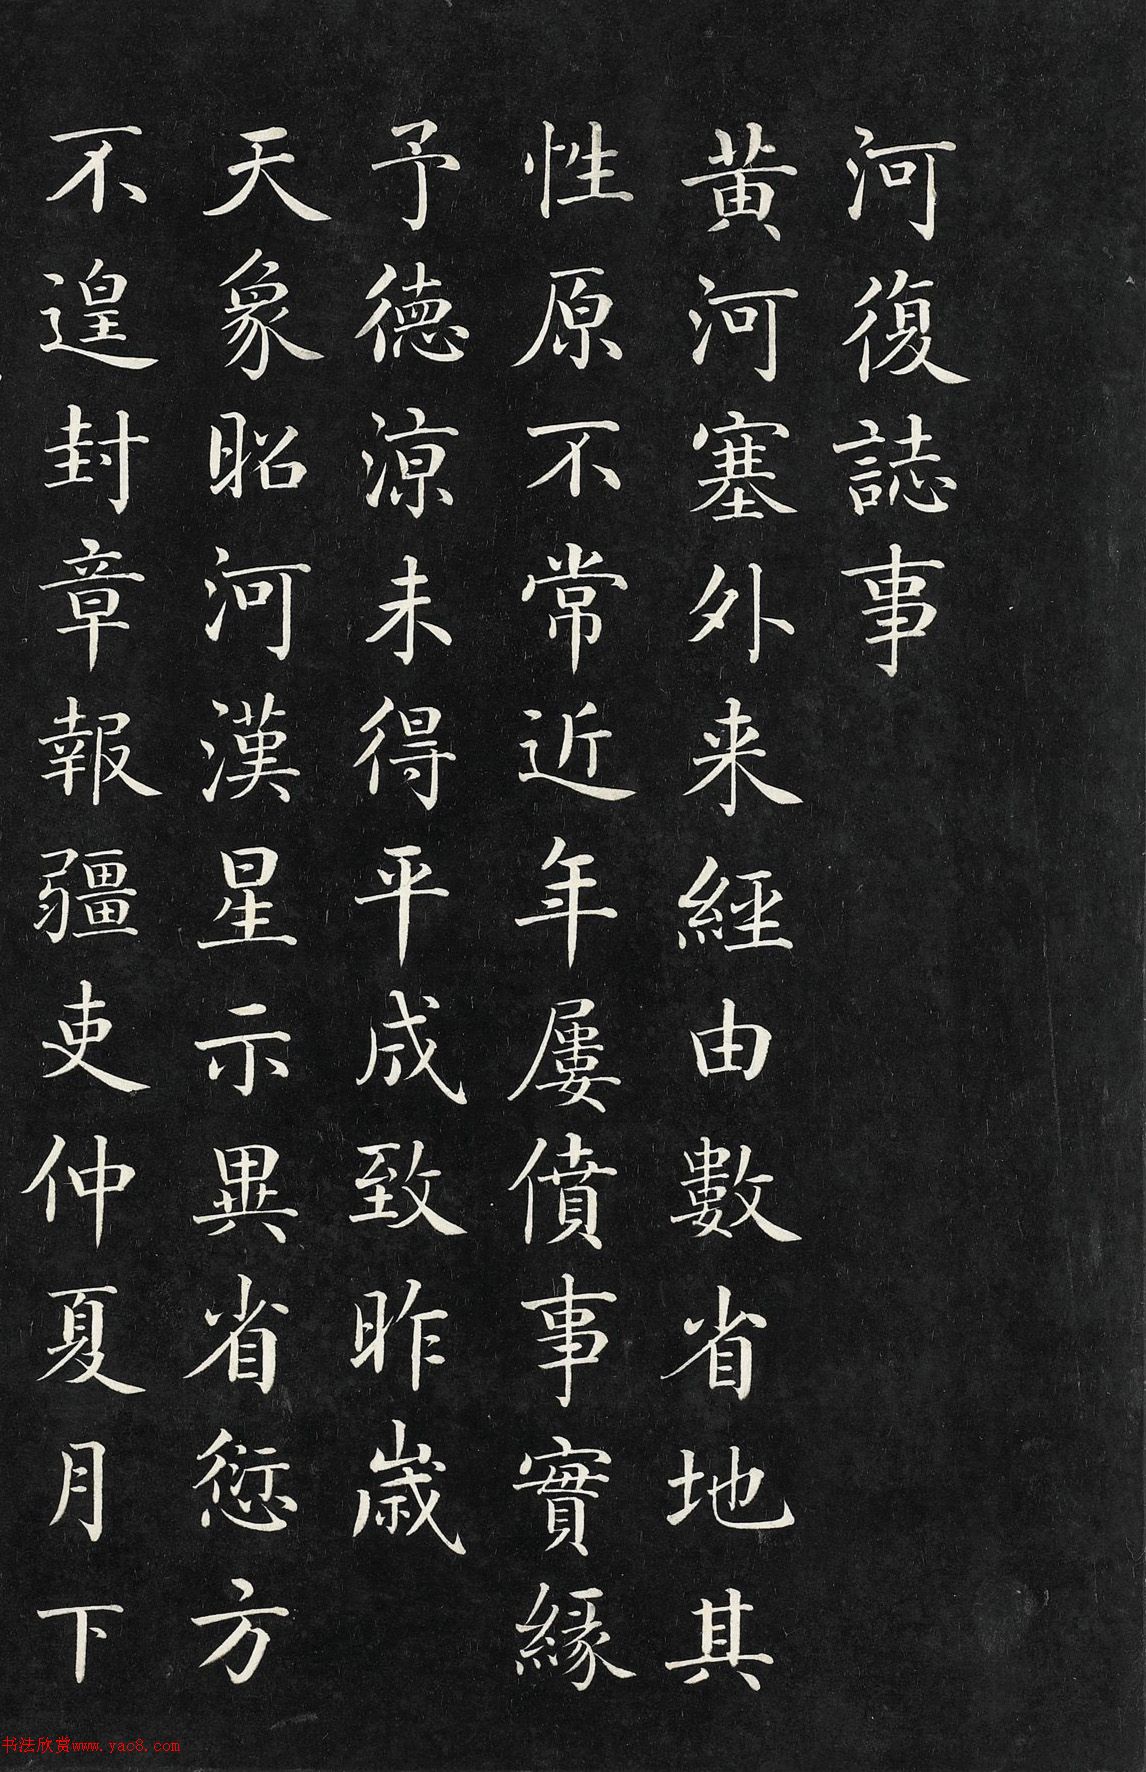 河復誌事
黃河塞外来經由數省地其
性原不常近年屢僨事實緣
予德涼未得平成致昨歲
天象昭河漢星示異省愆方
不遑封章報疆吏仲夏月下
书法欣赏www.yac8.com